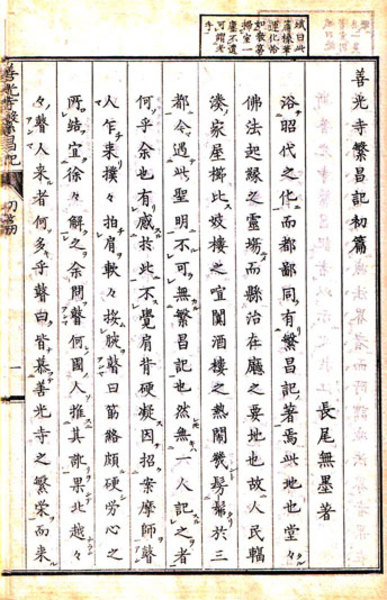 善光寺繁昌記初篇
長尾無墨著
浴昭代之化而都鄙同有繁昌記著焉此地也堂々
佛法起縁之靈場而縣治在廳之要地也故人民輻
湊家屋櫛比妓樓之喧鬨酒樓之熱鬧幾髣髴於三
都令遇此聖明不可無繁昌記也然無一人記之者
何乎余也有感於此不覺肩背硬凝因招案摩師瞽
人乍来撲々拍肩軟々揉腕瞽曰筋絡頗硬勞心之
所結宜徐々解之余問瞽何國人推其訛果北越々
々瞽人来者何多乎瞽曰皆慕善光寺之繁榮而来
善光寺繁昌記
初篇
一